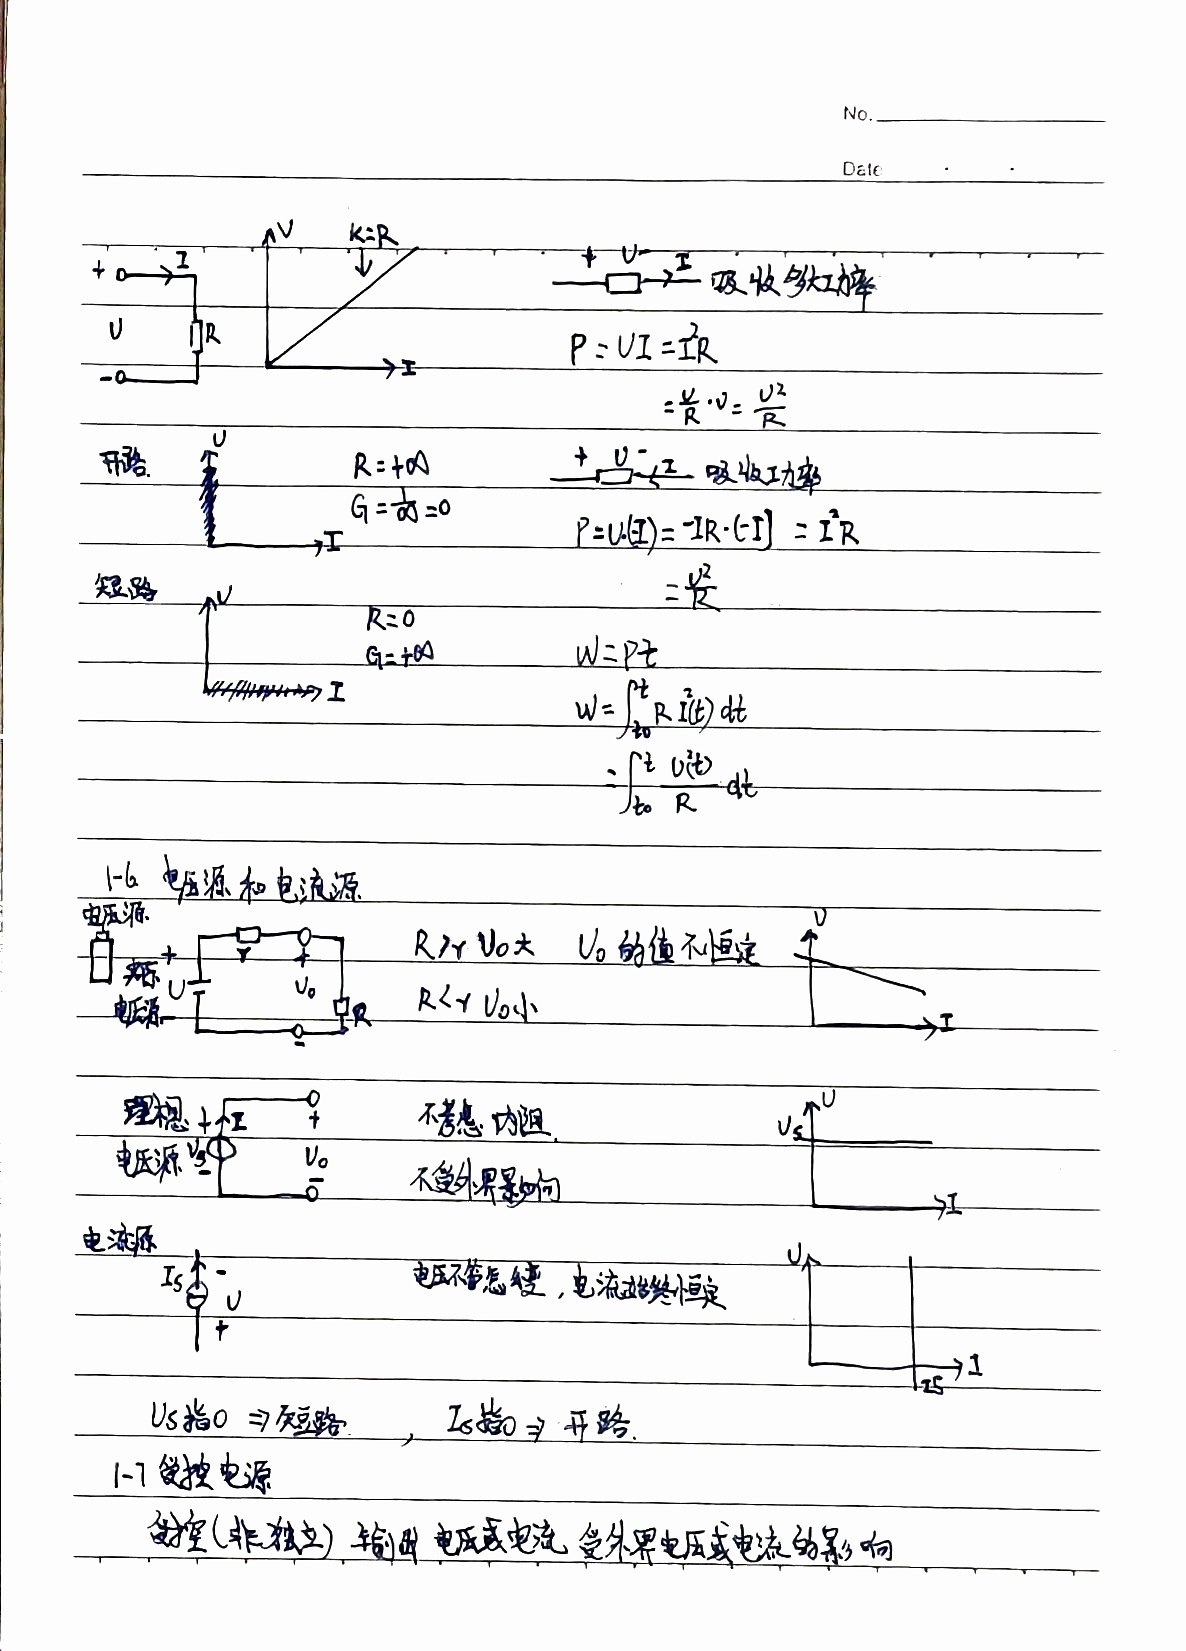 No.
Date
U K=R
+ I + U - I 吸收功率
U R I
-
P=UI=I²R
=U/R·U=U²/R
开路 U R=+∞ + U - I 吸收功率
G=1/∞=0
I P=U·(-I)=-IR·(-I)=I²R
=U²/R
短路 U R=0
G=+∞ W=Pt
I W=∫t0^t R I²(t) dt
=∫t0^t U²(t)/R dt
1-6 电压源和电流源
电压源
实际电压源 + U - r + U0 - R R>r U0大 U0的值不恒定 U I
R<r U0小
理想电压源 + Us - I + U0 - 不考虑内阻 U Us I
不受外界影响
电流源
Is - U + 电压不管怎么变,电流始终恒定 U I Is
Us指0 ⇒ 短路, Is指0 ⇒ 开路.
1-7 受控电源
受控(非独立) 输出电压或电流受外界电压或电流的影响